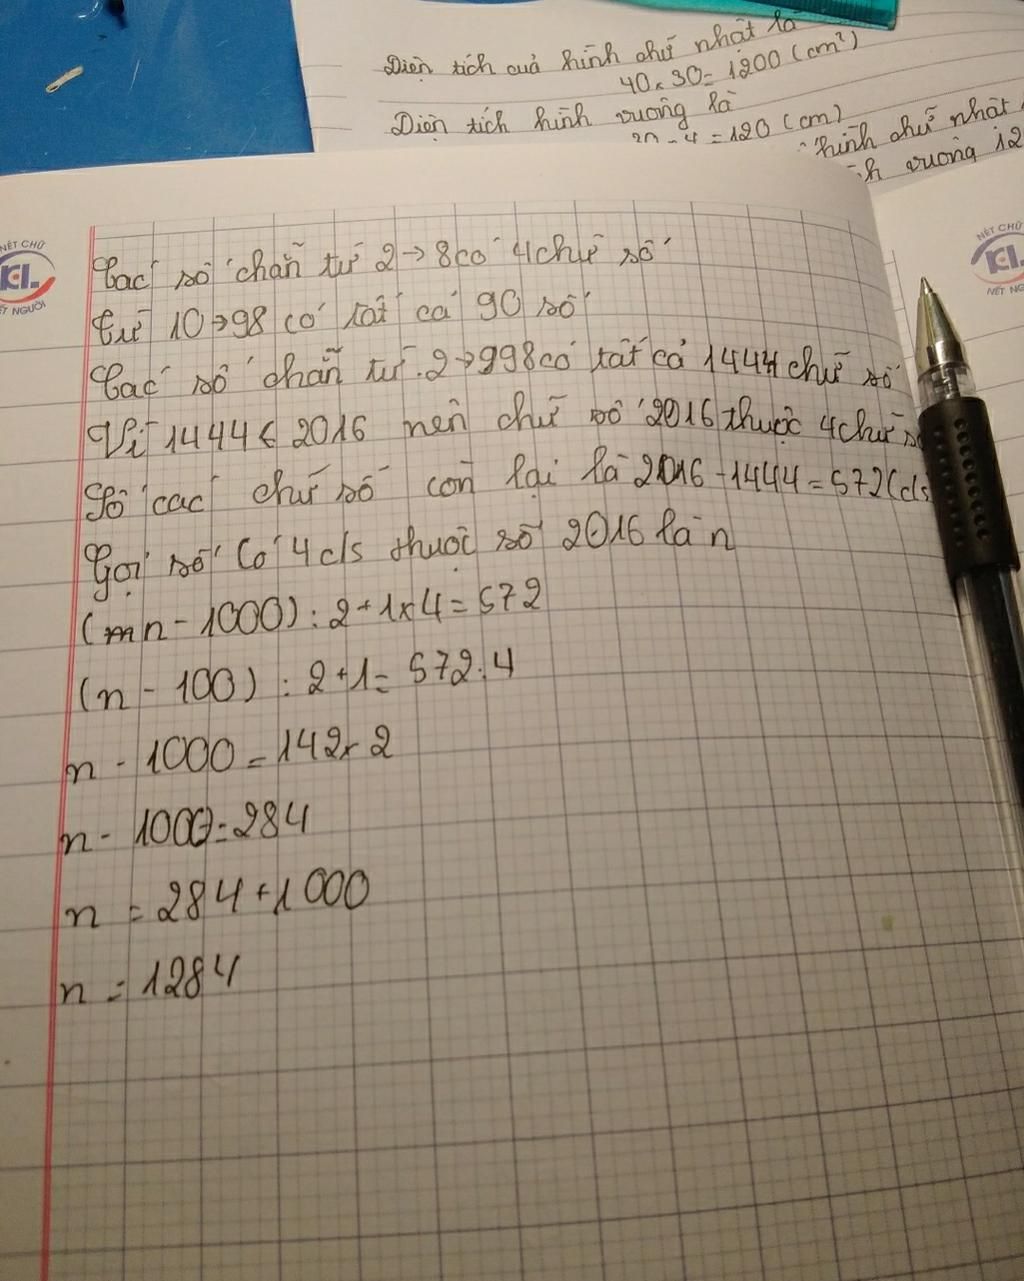 Diện tích cuả hình chữ nhật là
40 x 30 = 1200 (cm²)
Diện tích hình vuông là
4 = 120 (cm)
hình chữ nhật
vuông 12
NÉT CHỮ
KL
NẾT NGƯỜI
NÉT CHỮ
KL
NẾT NG
Các số chẵn từ 2→8 có 4 chữ số
Từ 10→98 có tất cả 90 số
Các số chẵn từ 2→998 có tất cả 1444 chữ số
Vì 1444 < 2016 nên chữ số 2016 thuộc 4 chữ
Số các chữ số còn lại là 2016 - 1444 = 572 (cls
Gọi số có 4 c/s thuộc số 2016 là n
(n - 1000) : 2 + 1 x 4 = 572
(n - 100) : 2 + 1 = 572 : 4
n - 1000 = 142 x 2
n - 1000 = 284
n = 284 + 1000
n = 1284